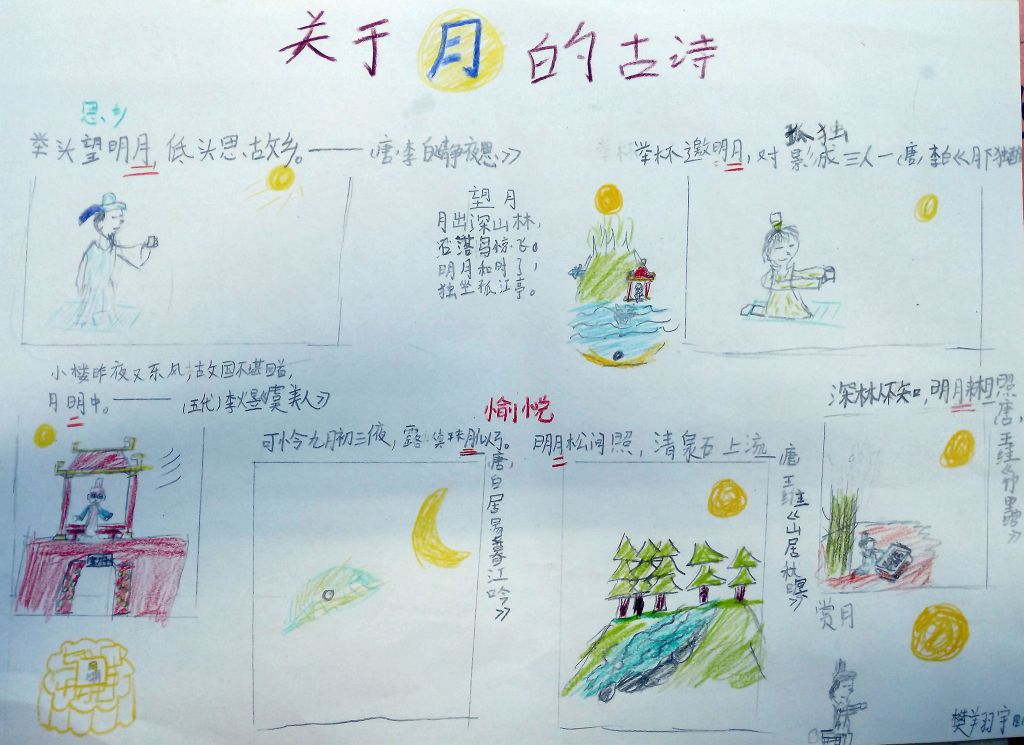 关于月的古诗
思乡
举头望明月，低头思故乡。——（唐，李白《静夜思》）
孤独
举杯邀明月，对影成三人—（唐，李白《月下独酌
望月
月出深山林，
石落鸟惊飞。
明月和时了，
独坐孤江亭。
小楼昨夜又东风，故国不堪回首，
月明中。——（五代）李煜《虞美人》
愉悦
可怜九月初三夜，露似真珠月似弓。
唐，白居易《暮江吟》
明月松间照，清泉石上流
唐，王维《山居秋暝》
深林人不知，明月来相照
唐，王维《竹里馆》
赏月
明月
樊羽宇